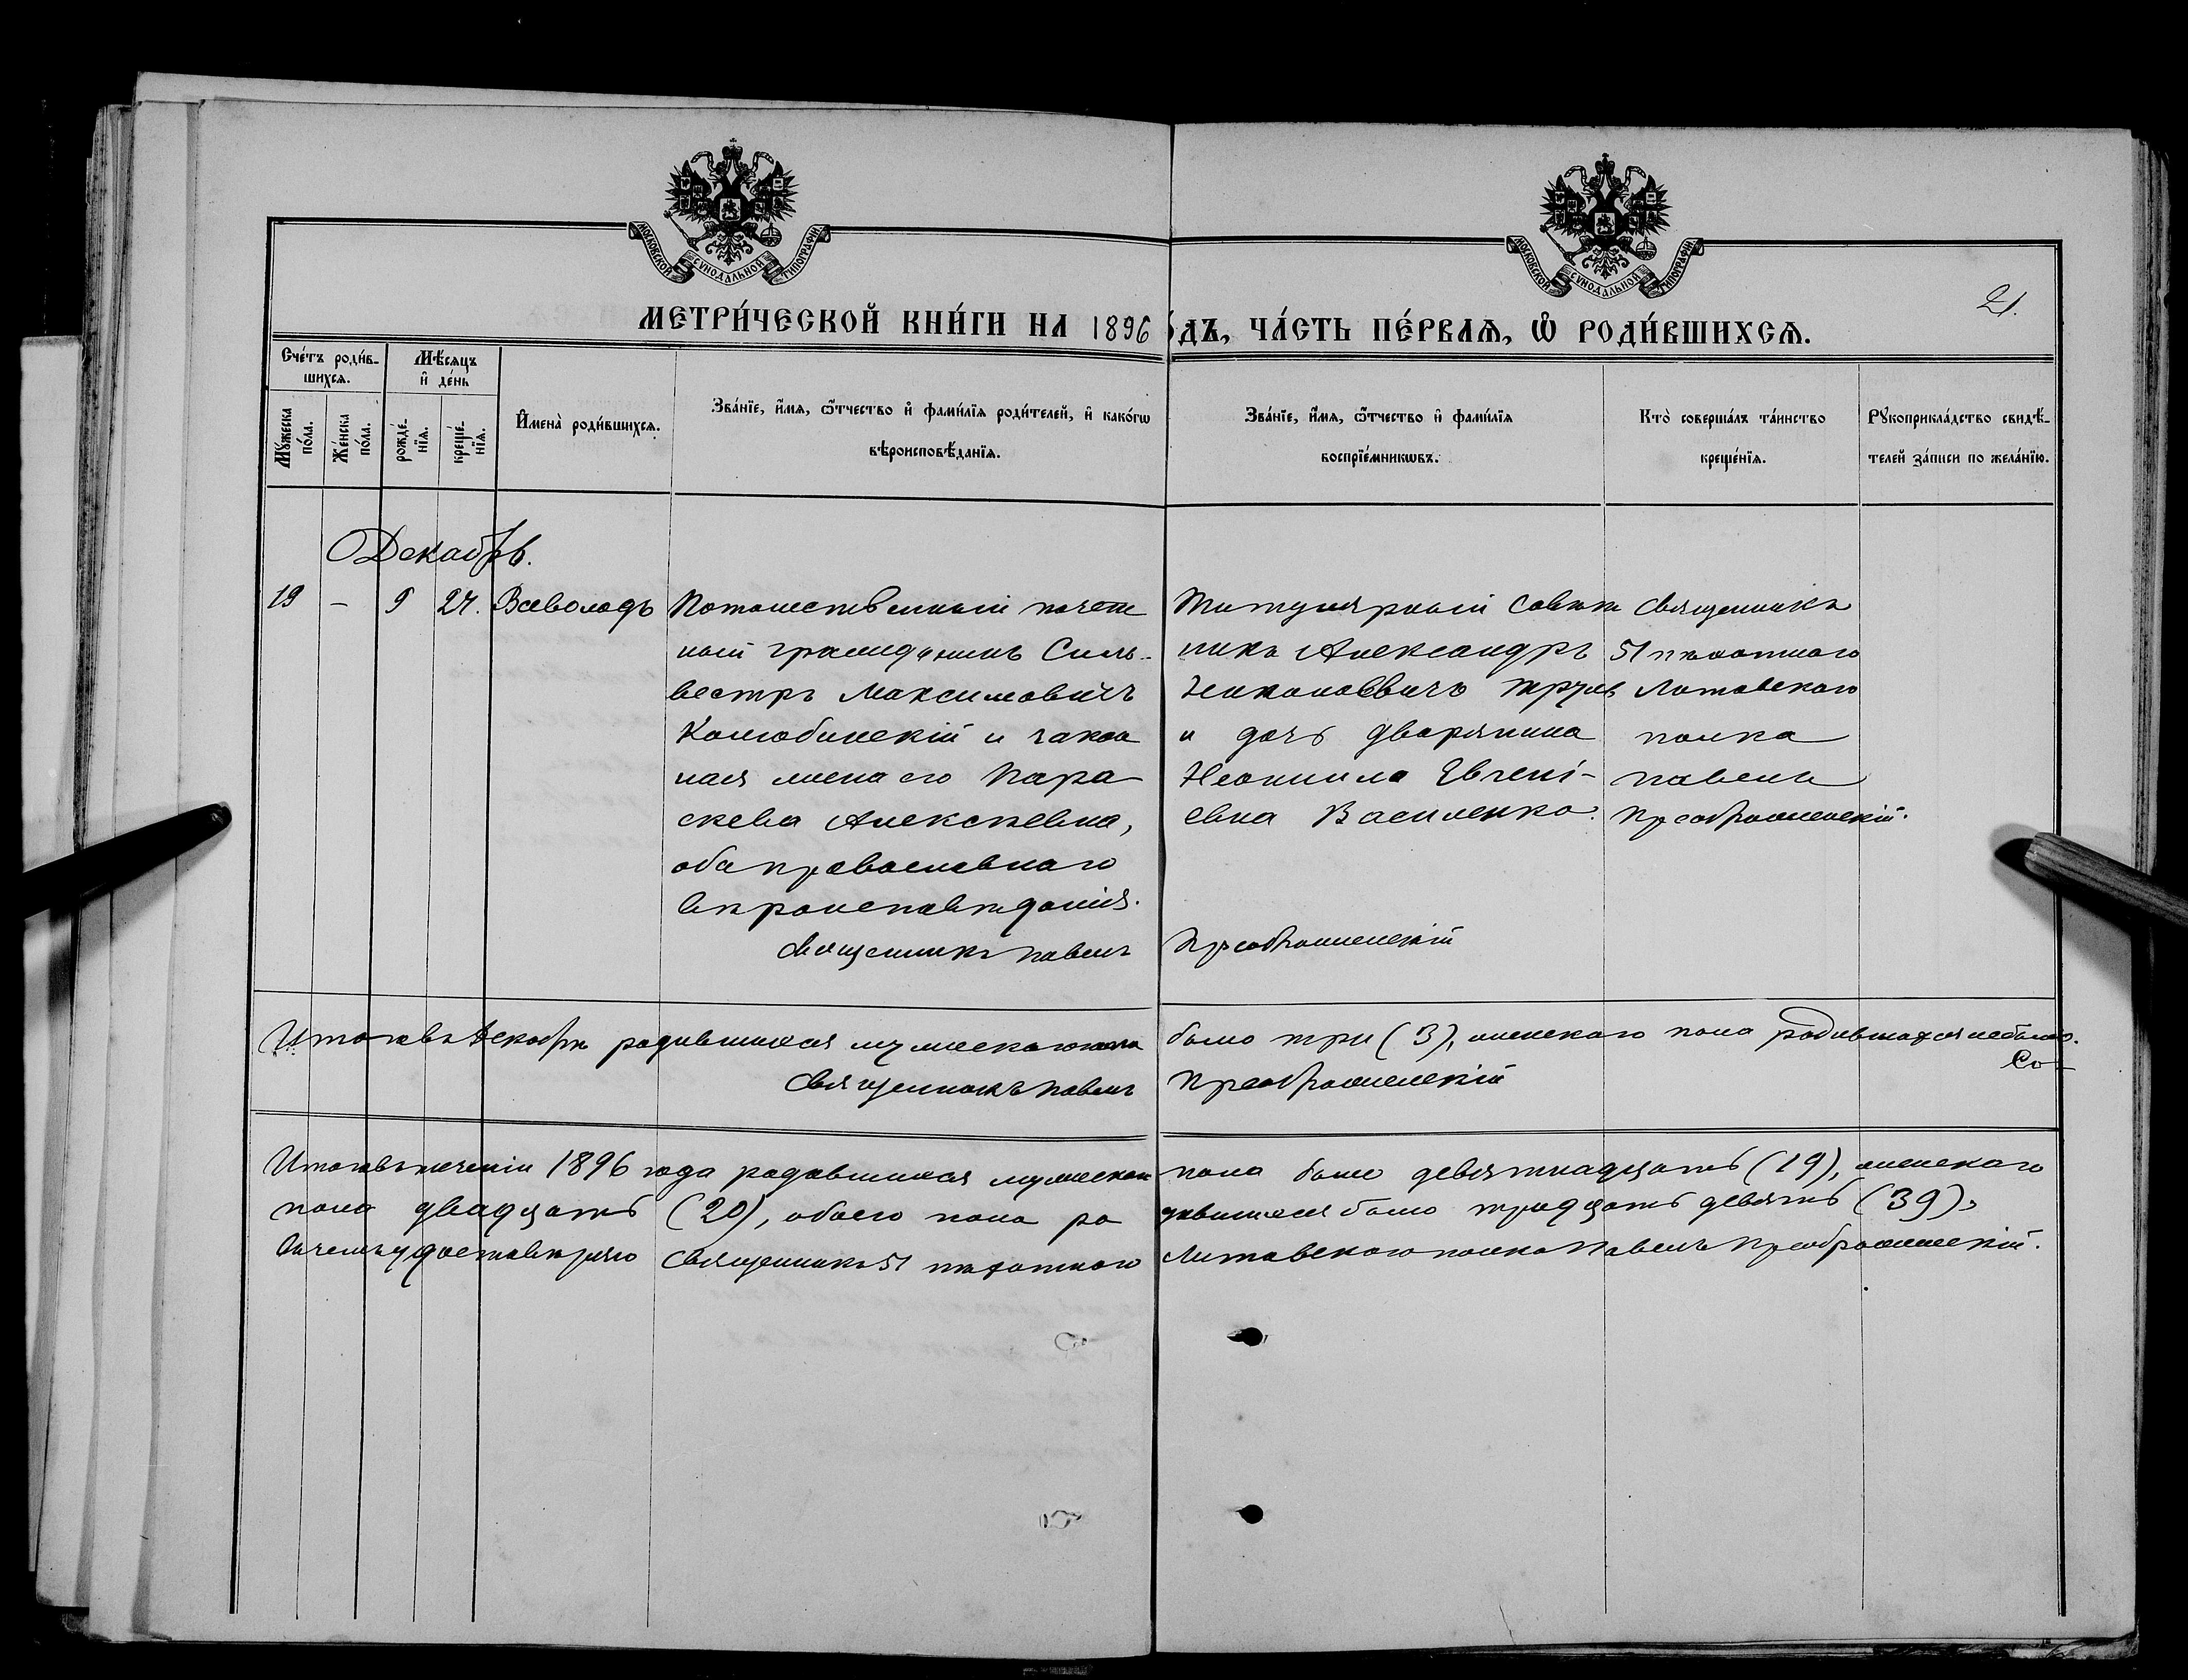 МОСКОВСКОЙ СѴНОДАЛЬНОЙ ТИПОГРАФІИ
МОСКОВСКОЙ СѴНОДАЛЬНОЙ ТИПОГРАФІИ
21.
МЕТРИ́ЧЕСКОЙ КНИ́ГИ НА 1896 ́ДЪ, ЧА́СТЬ ПЕ́РВАѦ, Ѡ҆ РОДИ́ВШИХСѦ.
Сче́тъ роди́в-
шихсѧ.
Мѣ́сѧцъ
и҆ де́нь
Мꙋ́жеска
по́ла.
Же́нска
по́ла.
рожде́-
нїѧ.
креще́-
нїѧ.
И҆мена̀ роди́вшихсѧ.
Зва́нїе, и҆́мѧ, ѻ҆́тчество и҆ фамї́лїѧ роди́телей, и҆ како́гѡ
вѣроисповѣ́данїѧ.
Зва́нїе, и҆́мѧ, ѻ҆́тчество и҆ фамї́лїѧ
воспрїе́мникѡвъ.
Кто̀ соверша́лъ та́инство
креще́нїѧ.
Рꙋкоприкла́дство свидѣ́-
телей за́писи по жела́нїю.
Декабрь.
19 – 9 24. Всеволодъ
Потомственный почет
ный гражданинъ Силь-
вестръ Максимовичъ
Коцюбинскій и закон
ная жена его Пара-
скева Алексѣевна,
оба православнаго
вѣроисповѣданія.
Священникъ Павелъ Преображенскій
Титулярный Совѣт
никъ Александръ
и дочь дворянина
Неонила Евгені-
евна Василенко.
Священникъ
51 пѣхотнаго
Литовскаго
полка
Павелъ
Преображенскій.
Итого въ Декабрѣ родившихся мужескаго пола было три (3), женскаго пола родившихся не было.
Священникъ Павелъ Преображенскій
Со-
Итого въ теченіи 1896 года родившихся мужескаго пола было девятнадцать (19), женскаго
пола двадцать (20), обоего пола ро дившихся было тридцать девять (39),
въ чемъ удостовѣряю Священникъ 51 пѣхотнаго Литовскаго полка Павелъ Преображенскій.